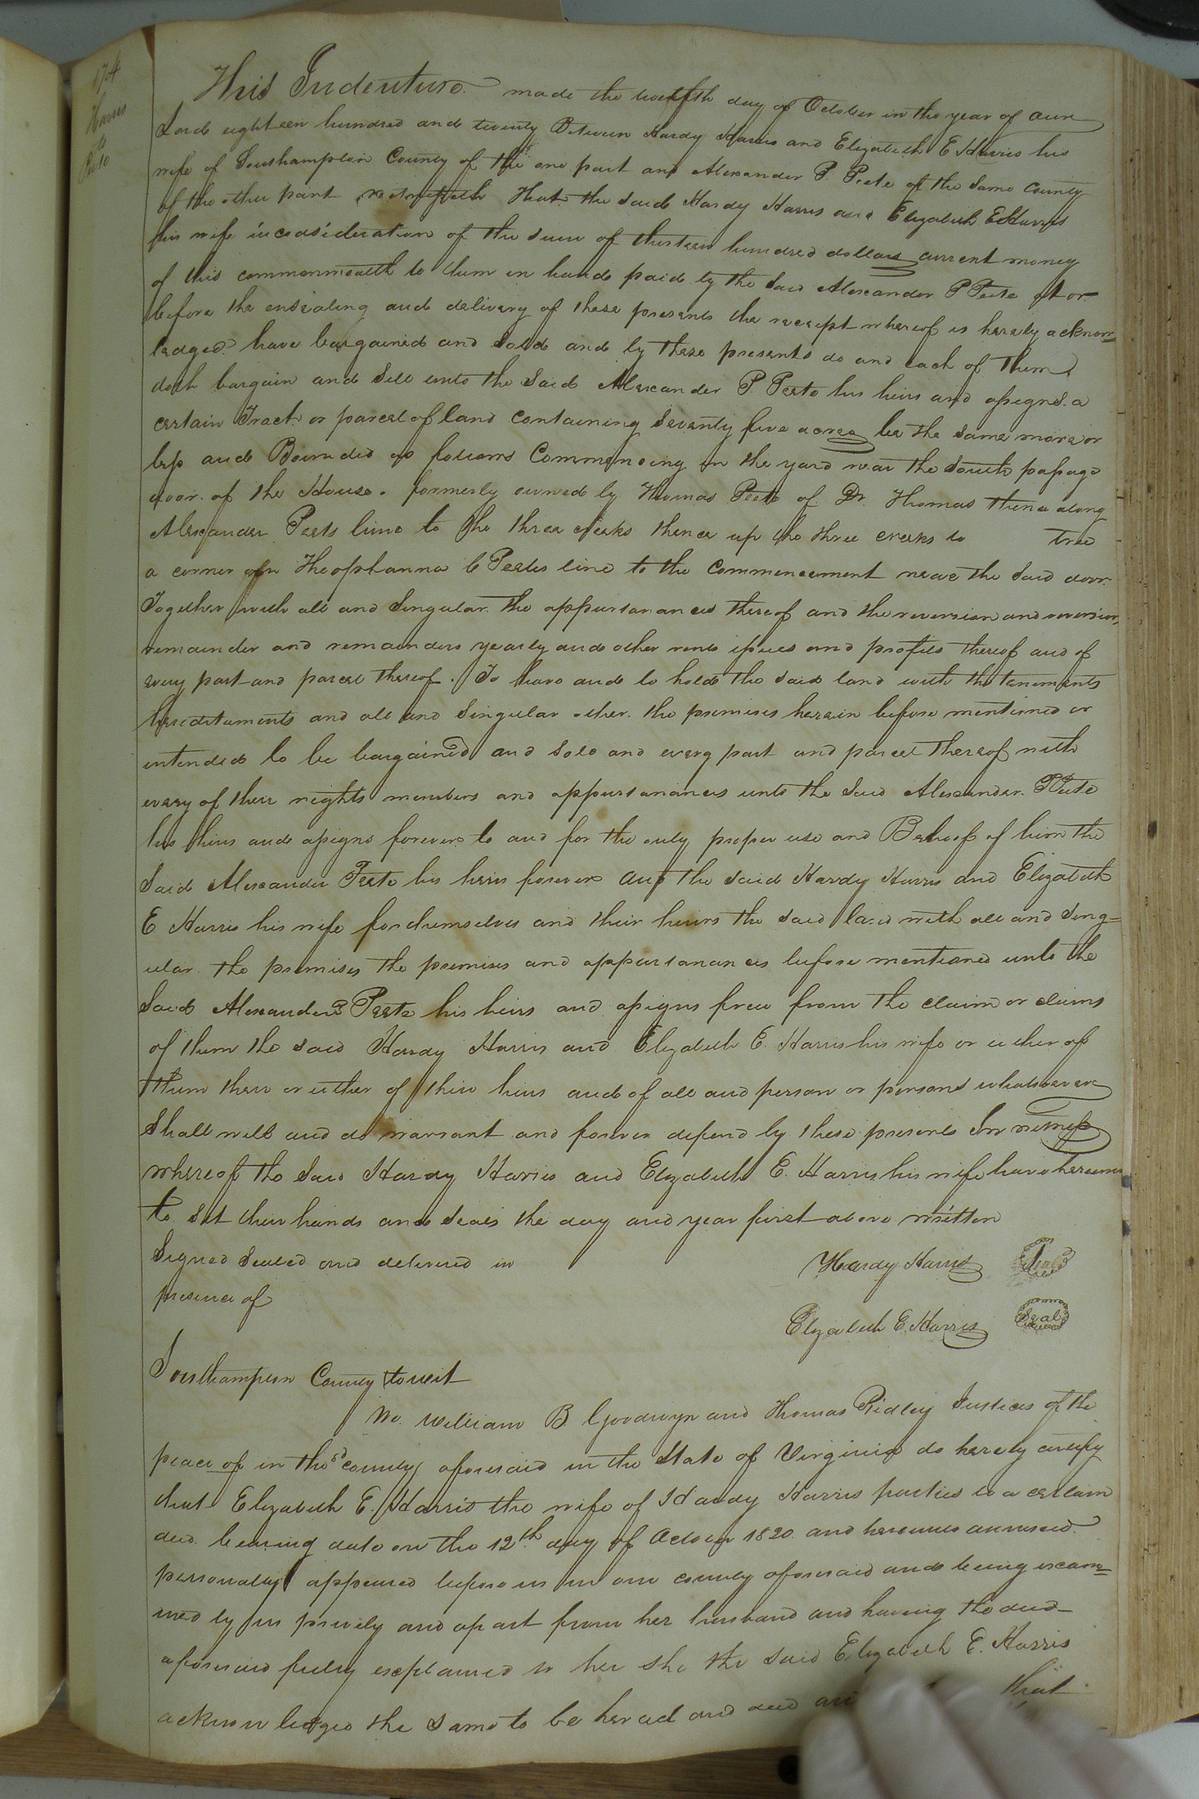 174
Harris
to
Peete
This Indenture made the twelfth day of October in the year of our
Lord eighteen hundred and twenty Between Hardy Harris and Elizabeth E Harris his
wife of Southampton County of the one part and Alexander P Peete of the same County
of the other part Witnesseth That the said Hardy Harris and Elizabeth E Harris
his wife inconsideration of the sum of thirteen hundred dollars current money
of this commonwealth to them in hand paid by the said Alexander P Peete at or
before the ensealing and delivery of these presents the receipt whereof is hereby acknow=
ledged have bargained and sold and by these presents do and each of them
doth bargain and sell unto the said Alexander P Peete his heirs and assigns a
certain Tract or parcel of land containing seventy five acres be the same more or
less and Bounded as follows Commencing in the yard near the South passage
door of the House formerly owned by Thomas Peete of Dr Thomas thence along
Alexander Peets line to the three creeks thence up the three creeks to tree
a corner on Theophanna C Peetes line to the commencement near the said door
Together with all and Singular the appurtanances thereof and the reversion and reversions,
remainder and remainders yearly and other rents issues and profits thereof and of
every part and parcel thereof. To have and to hold the said land with the tenements
hereditaments and all and Singular other the premises herein before mentioned or
intended to be bargained and sold and every part and parcel thereof with
every of their rights members and appurtanances unto the said Alexander P Peete
his heirs and assigns forever to and for the only proper use and Behoof of him the
Said Alexander Peete his heirs forever and the said Hardy Harris and Elizabeth
E Harris his wife for themselves and their heirs the said land with all and Sing=
ular the premises the premises and appurtanances before mentioned unto the
Said Alexander P Peete his heirs and assigns free from the claim or claims
of them the said Hardy Harris and Elizabeth E. Harris his wife or either of
them their or either of their heirs and of all and person or persons whatsoever
Shall will and do warrant and forever defend by these presents In witness
whereof the said Hardy Harris and Elizabeth E. Harris his wife have hereun
to set their hands and seals the day and year first above written
Signed Sealed and delivered in
presence of
Hardy Harris Seal
Elizabeth E. Harris Seal
Southampton County towit
We William B Goodwyn and Thomas Ridley Justices of the
peace of in the sd county aforesaid in the State of Virginia do hereby certify
that Elizabeth E. Harris the wife of Hardy Harris parties to a certain
deed bearing date on the 12th day of October 1820 and hereunto annexed
personally appeared before us in our county aforesaid and being exam=
ined by us privily and apart from her husband and having the deed
aforesaid fully explained to her she the said Elizabeth E. Harris
acknowledged the same to be her act and deed and that